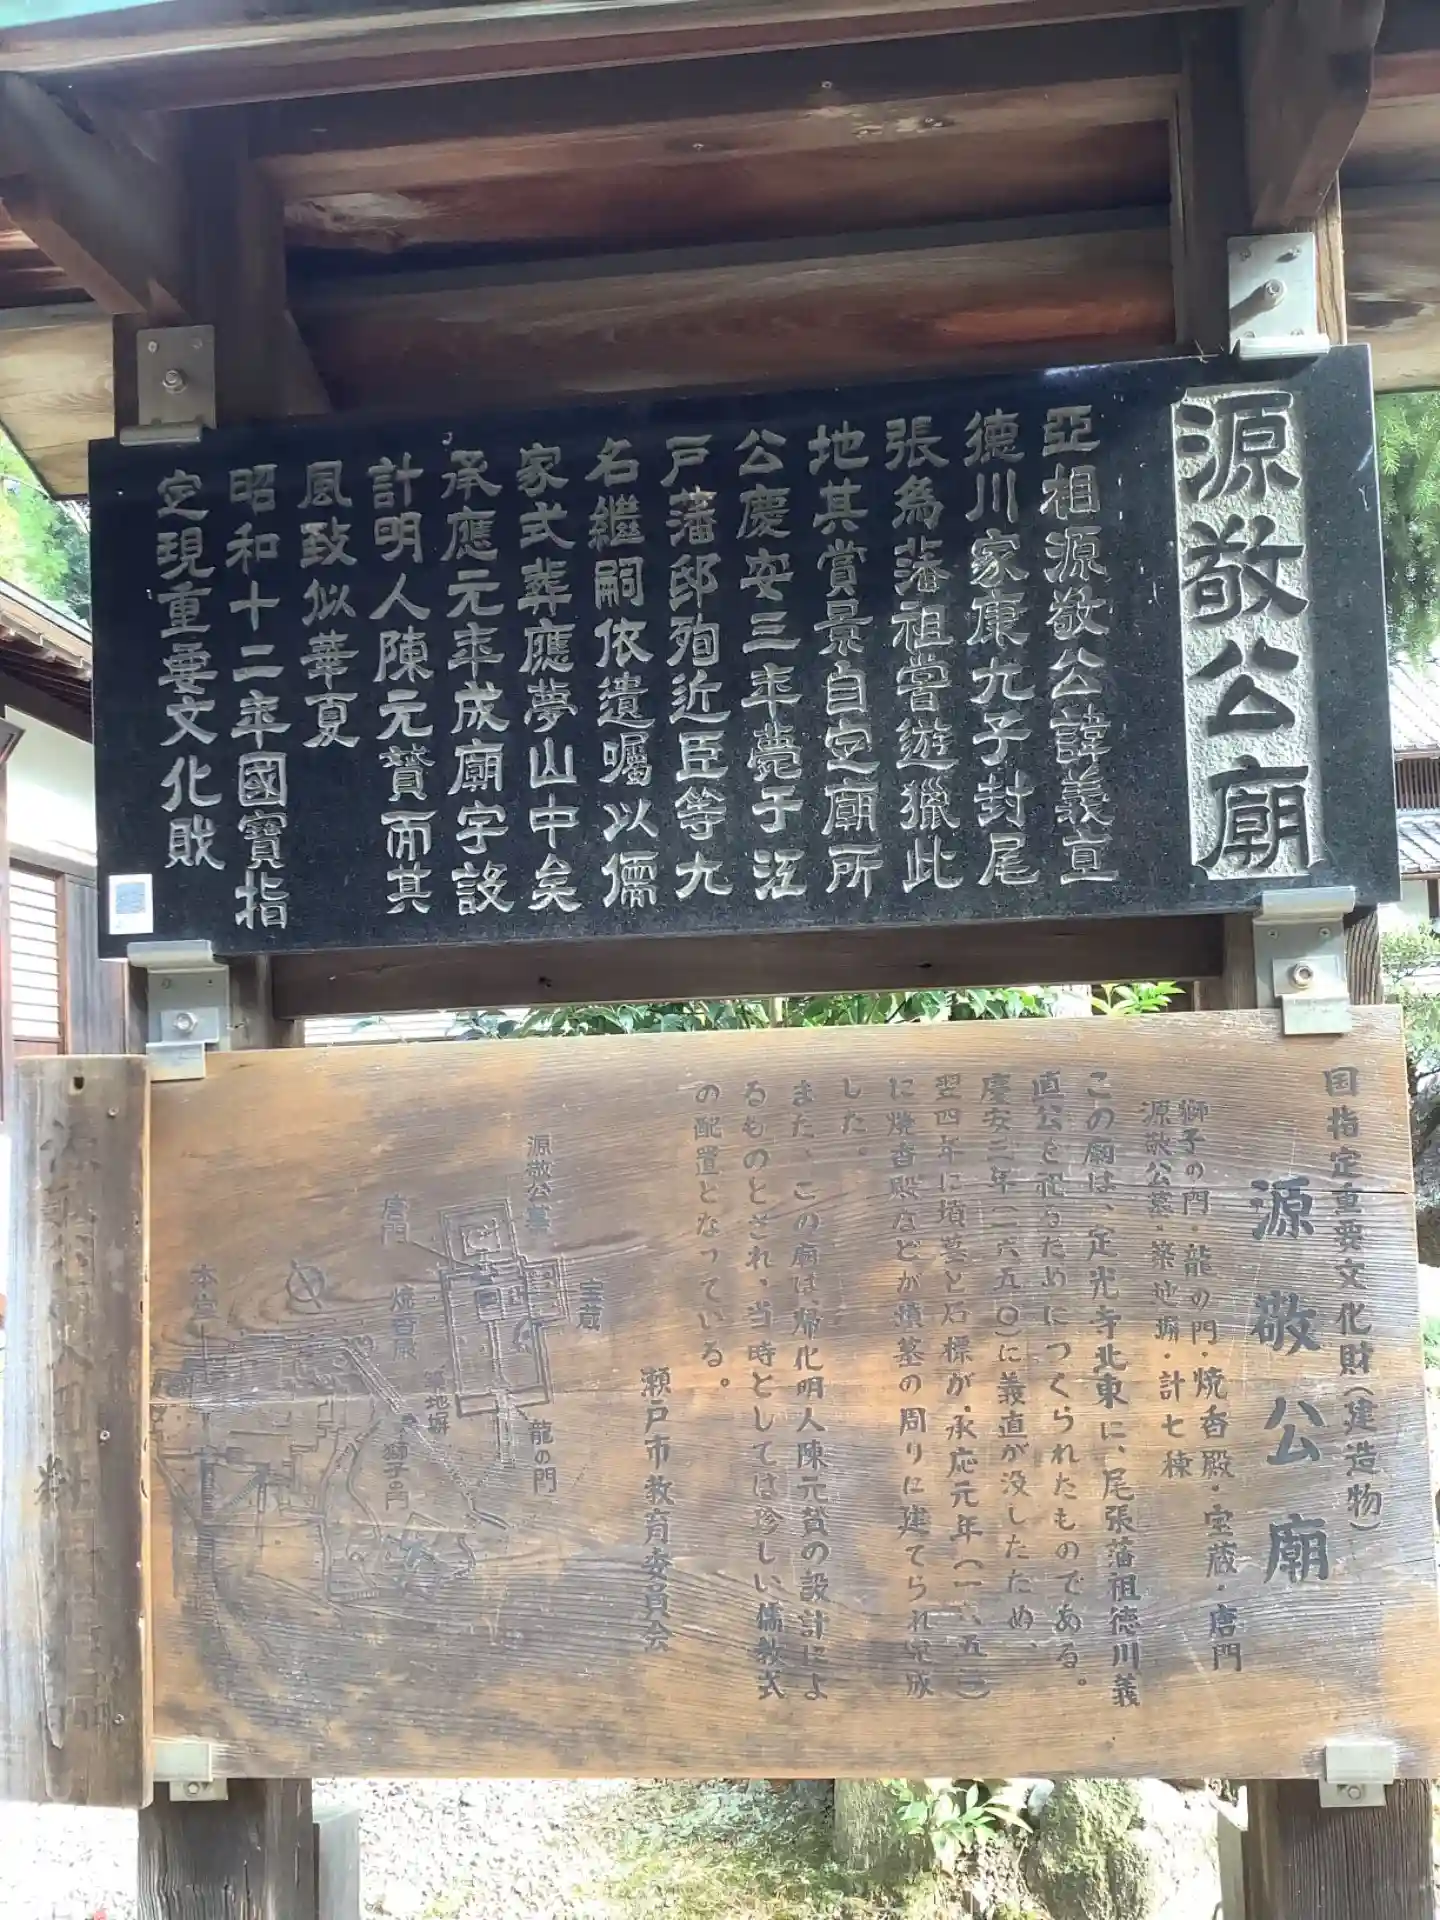 源敬公廟
亞相源敬公諱義直
德川家康九子封尾
張為藩祖嘗遊獵此
地其賞景自定廟所
公慶安三年薨于江
戸藩邸殉近臣等九
名繼嗣依遺囑以儒
家式葬應夢山中矣
承應元年成廟宇設
計明人陳元贇而其
風致似華夏
昭和十二年國寶指
定現重要文化財
国指定重要文化財(建造物)
源敬公廟
獅子の門・龍の門・焼香殿・宝蔵・唐門
源敬公墓・築地塀・計七棟
この廟は、定光寺北東に、尾張藩祖徳川義
直公を祀るためにつくられたものである。
慶安三年(一六五〇)に義直が没したため、
翌四年に墳墓と石標が、承応元年(一六五二)
に焼香殿などが墳墓の周りに建てられ完成
した。
また、この廟は、帰化明人陳元贇の設計によ
るものとされ、当時としては珍しい儒教式
の配置となっている。
瀬戸市教育委員会
源敬公墓
宝蔵
唐門
焼香殿
築地塀
龍の門
獅子の門
本堂